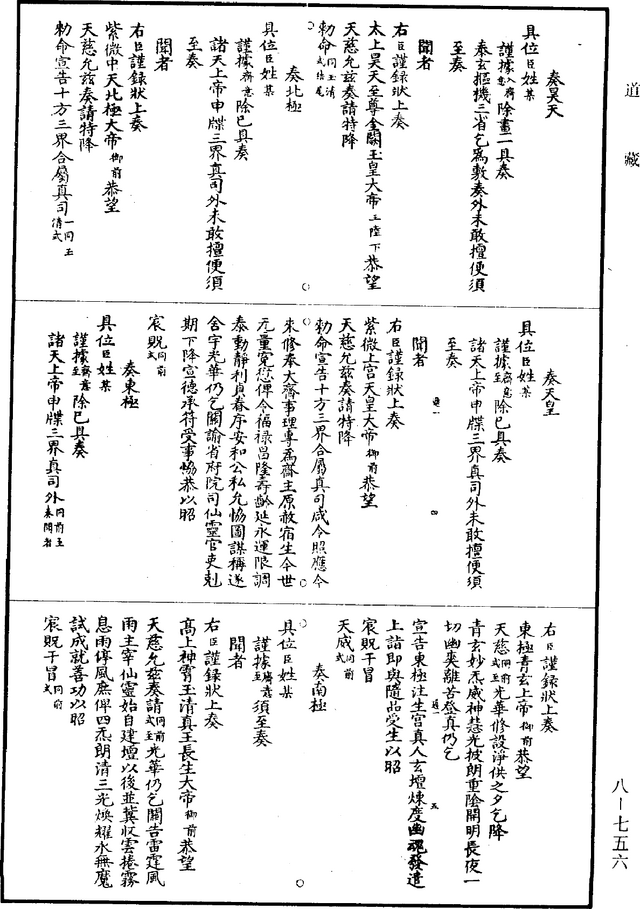 道藏
奏昊天
具位臣姓某
謹據入齋意除畫一具奏
泰玄摳機三省乞為敷奏外未敢擅便須
至奏
聞者
右臣謹錄狀上奏
太上昊天至尊金闕玉皇大帝玉陛下恭望
天慈允茲奏請特降
勑命同玉清式結尾
奏北極
具位臣姓某
謹據齋意除已具奏
諸天上帝申牒三界真司外未敢擅便須
至奏
聞者
右臣謹錄狀上奏
紫微中天北極大帝御前恭望
天慈允茲奏請特降
勑命宣告十方三界合屬真司一同玉清式
奏天皇
具位臣姓某
謹據齋意至除已具奏
諸天上帝申牒三界真司外未敢擅便須
至奏
聞者
右臣謹錄狀上奏
紫微上宮天皇大帝御前恭望
天慈允茲奏請特降
勑命宣告十方三界合屬真司咸令照應今
來修奉大齋事理專為齋主原赦宿生今世
元量冤愆俾令福祿昌隆壽齡延永運限調
泰動靜利貞眷序安和公私允愜圖謀稱遂
舍宇光華仍乞關諭省府院司仙靈官吏剋
期下降宣德承符受事恊恭以昭
宸貺同前式
奏東極
具位臣姓某
謹據齋意至除已具奏
諸天上帝申牒三界真司外同前至奏聞者
右臣謹錄狀上奏
東極青玄上帝御前恭望
天慈同前式至光華修設淨供之夕乞降
青玄妙炁威神慧光披朗重陰開明長夜一
切幽爽離苦登真仍乞
宣告東極注生宮真人玄壇煉度幽魂發遣
上詣即與隨品受生以昭
宸貺干冒
天威同前式
奏南極
具位臣姓某
謹據齋意至須至奏
聞者
右臣謹錄狀上奏
高上神霄玉清真王長生大帝御前恭望
天慈允茲奏請同前式至光華仍乞關告雷霆風
雨主宰仙靈始自建壇以後並冀收雲捲霧
息雨停風庶俾四炁朗清三光煥耀水無魔
試成就善功以昭
宸貺干冒同前式
八－七五六